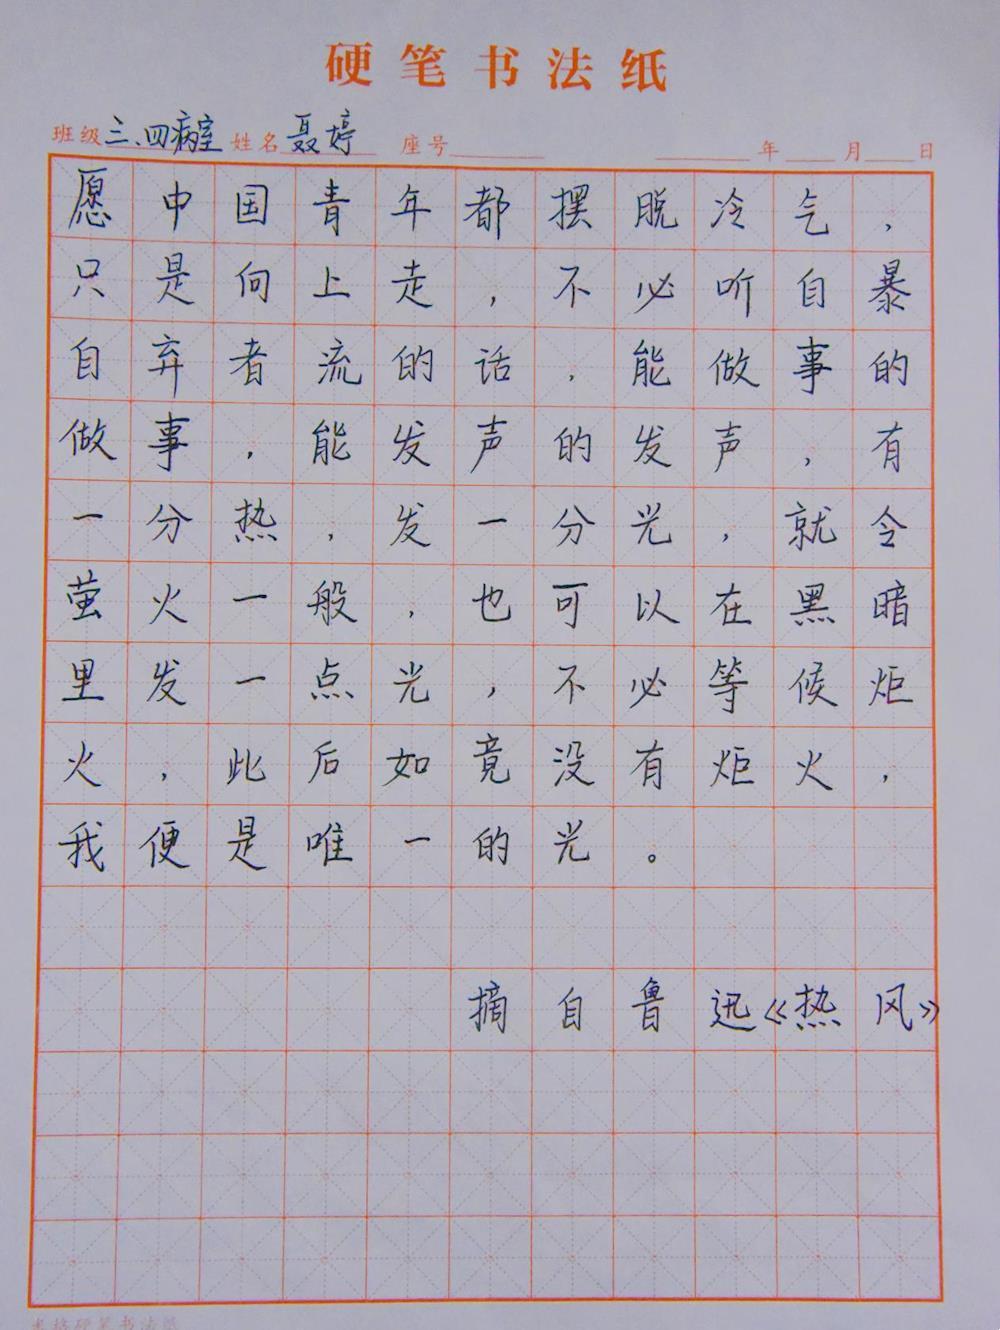 硬笔书法纸
班级 三、四病室 姓名 聂婷 座号 年 月 日
愿中国青年都摆脱冷气，
只是向上走，不必听自暴
自弃者流的话，能做事的
做事，能发声的发声，有
一分热，发一分光，就令
萤火一般，也可以在黑暗
里发一点光，不必等候炬
火，此后如竟没有炬火，
我便是唯一的光。
摘自鲁迅《热风》